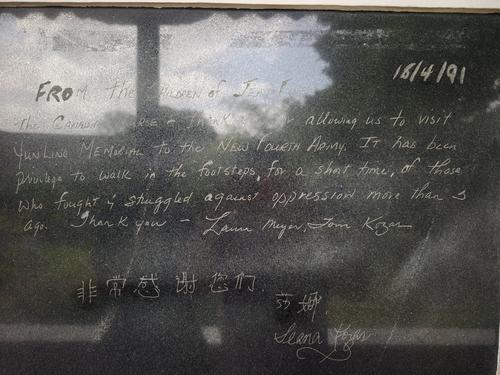 16/4/91
FROM the CHILDREN of JEAN
The CANADIAN NURSE - THANK allowing us to visit
YUNLING MEMORIAL to the NEW FOURTH ARMY. IT has been
privilege to walk in the footsteps, for a short time, of those
who fought & struggled against oppression more than 5
ago. Thank you - Laura Meyer, Tom Kozar
非常感谢您们
莎娜
Leana Kozar